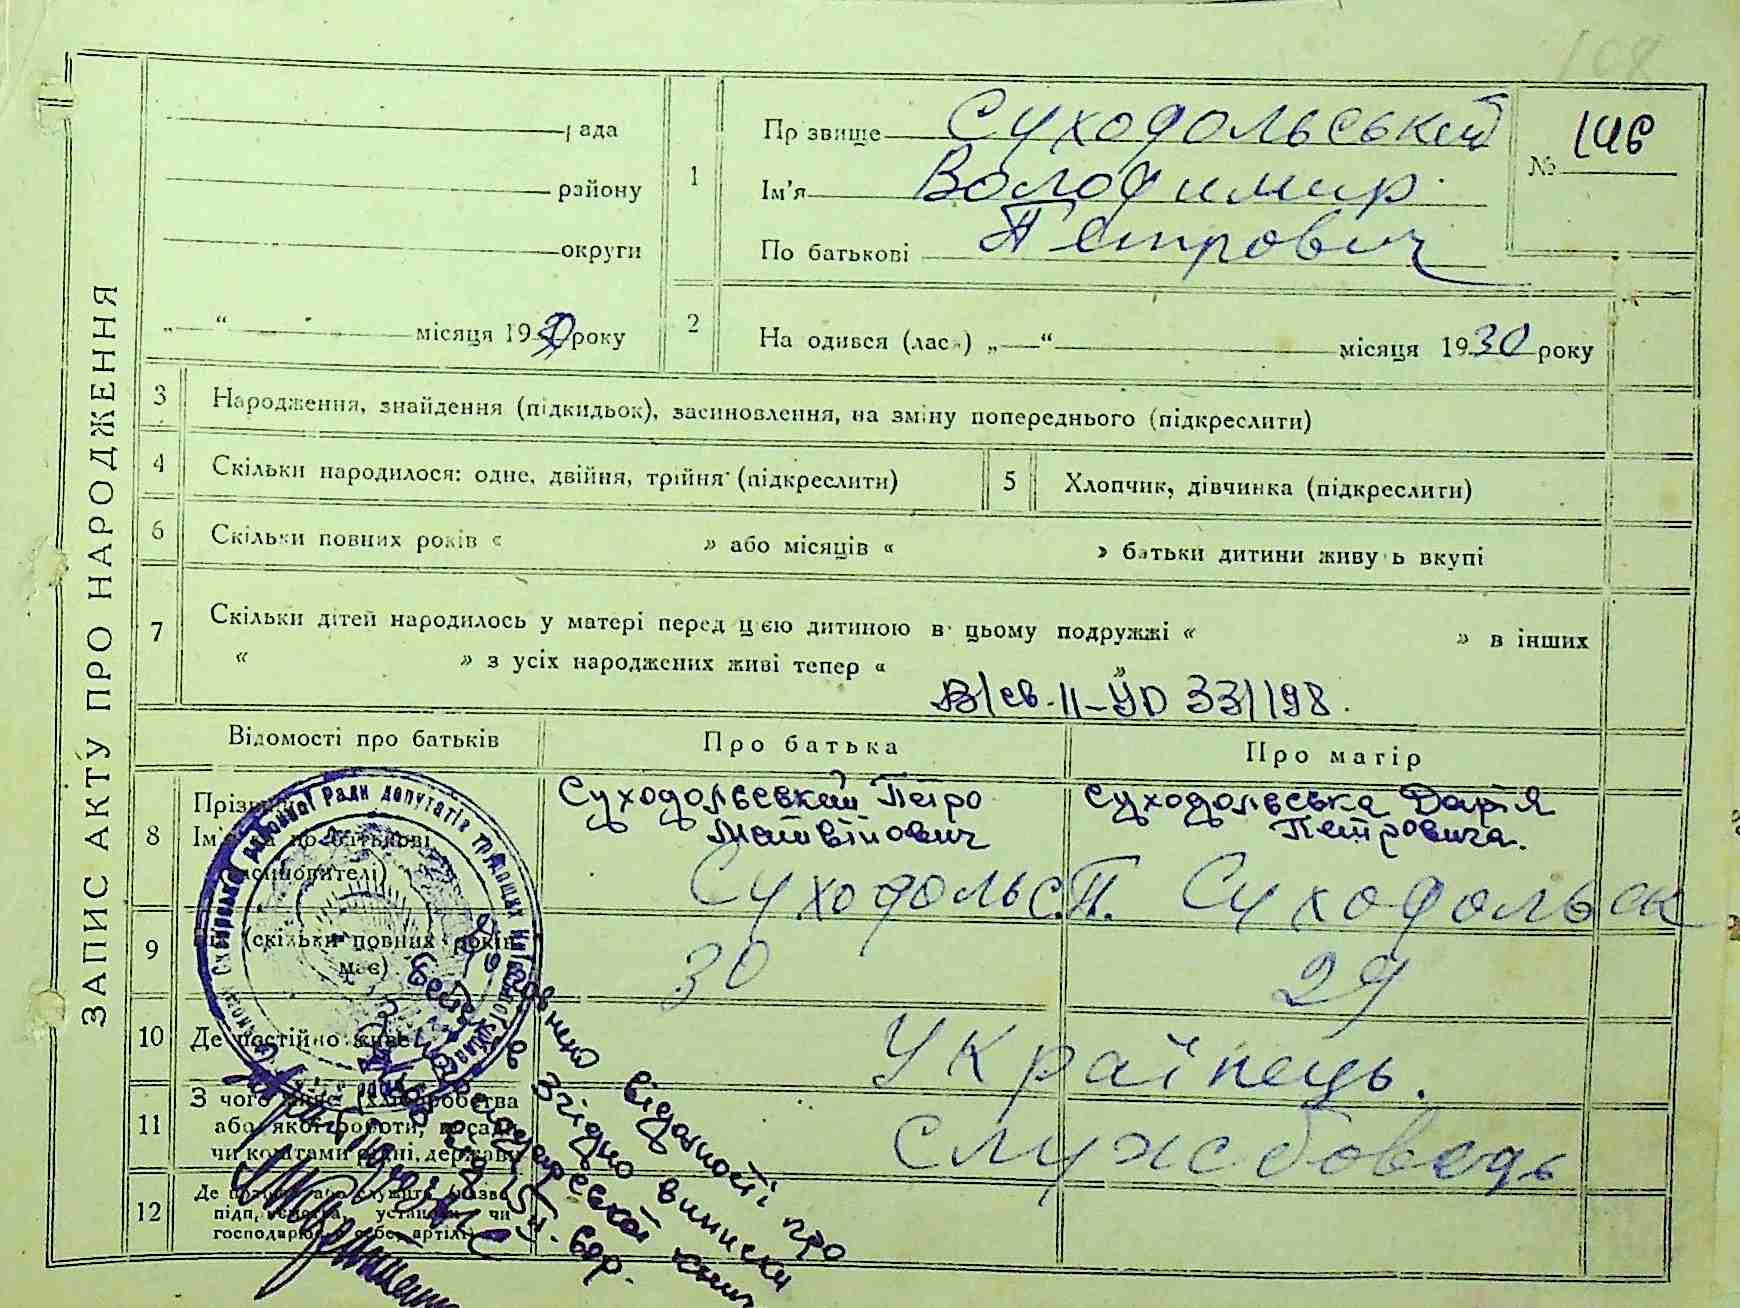 108
ЗАПИС АКТУ ПРО НАРОДЖЕННЯ
рада
району
округи
„ “ місяця 1930 року
1
Прізвище Суходольський
Ім'я Володимир
По батькові Петрович
№ 146
2
На одився (лас.) „ “ місяця 1930 року
3 Народження, знайдення (підкидьок), засиновлення, на зміну попереднього (підкреслити)
4 Скільки народилося: одне, двійня, трійня (підкреслити)
5 Хлопчик, дівчинка (підкреслити)
6 Скільки повних років « » або місяців « » батьки дитини живу ь вкупі
7 Скільки дітей народилось у матері перед цією дитиною в цьому подружжі « » в інших
« » з усіх народжених живі тепер « »
В/св. ІІ-УО 331198.
Відомості про батьків
Про батька
Про матір
8
Суходольський Петро
Матвійович
Суходольська Дарія
Петровича.
Суходольс. П. Суходольськ
9 (скільки повних років
має)
30
29
10 Де постійно живе
Українець.
11 З чого живе (хліборобства
або якої роботи, посади
чи коштами рідні, держави
Службовець
12
підп, установи чи
відомості про
Згідно виписки